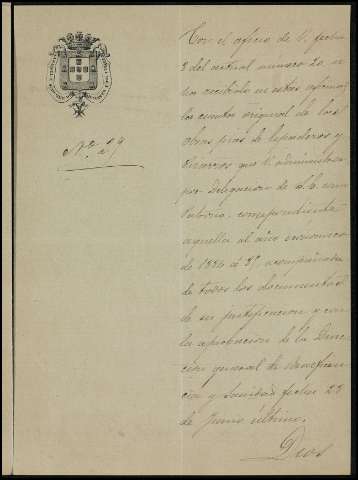 Nº 29
Con el oficio de V. fecha
8 del actual número 20, se
han recibido en estas oficinas
las cuentas original de las
obras pias de
que V. administra
por delegacion de S. E. 
Patrono, comprendiendo
aquella el año económico
de 1886 á 87, acompañada
de todos los documentos
de su justificacion y con
la aprobacion de la Direc-
cion general de Beneficen-
cia y Sanidad fecha 22
de Junio último.
Dios